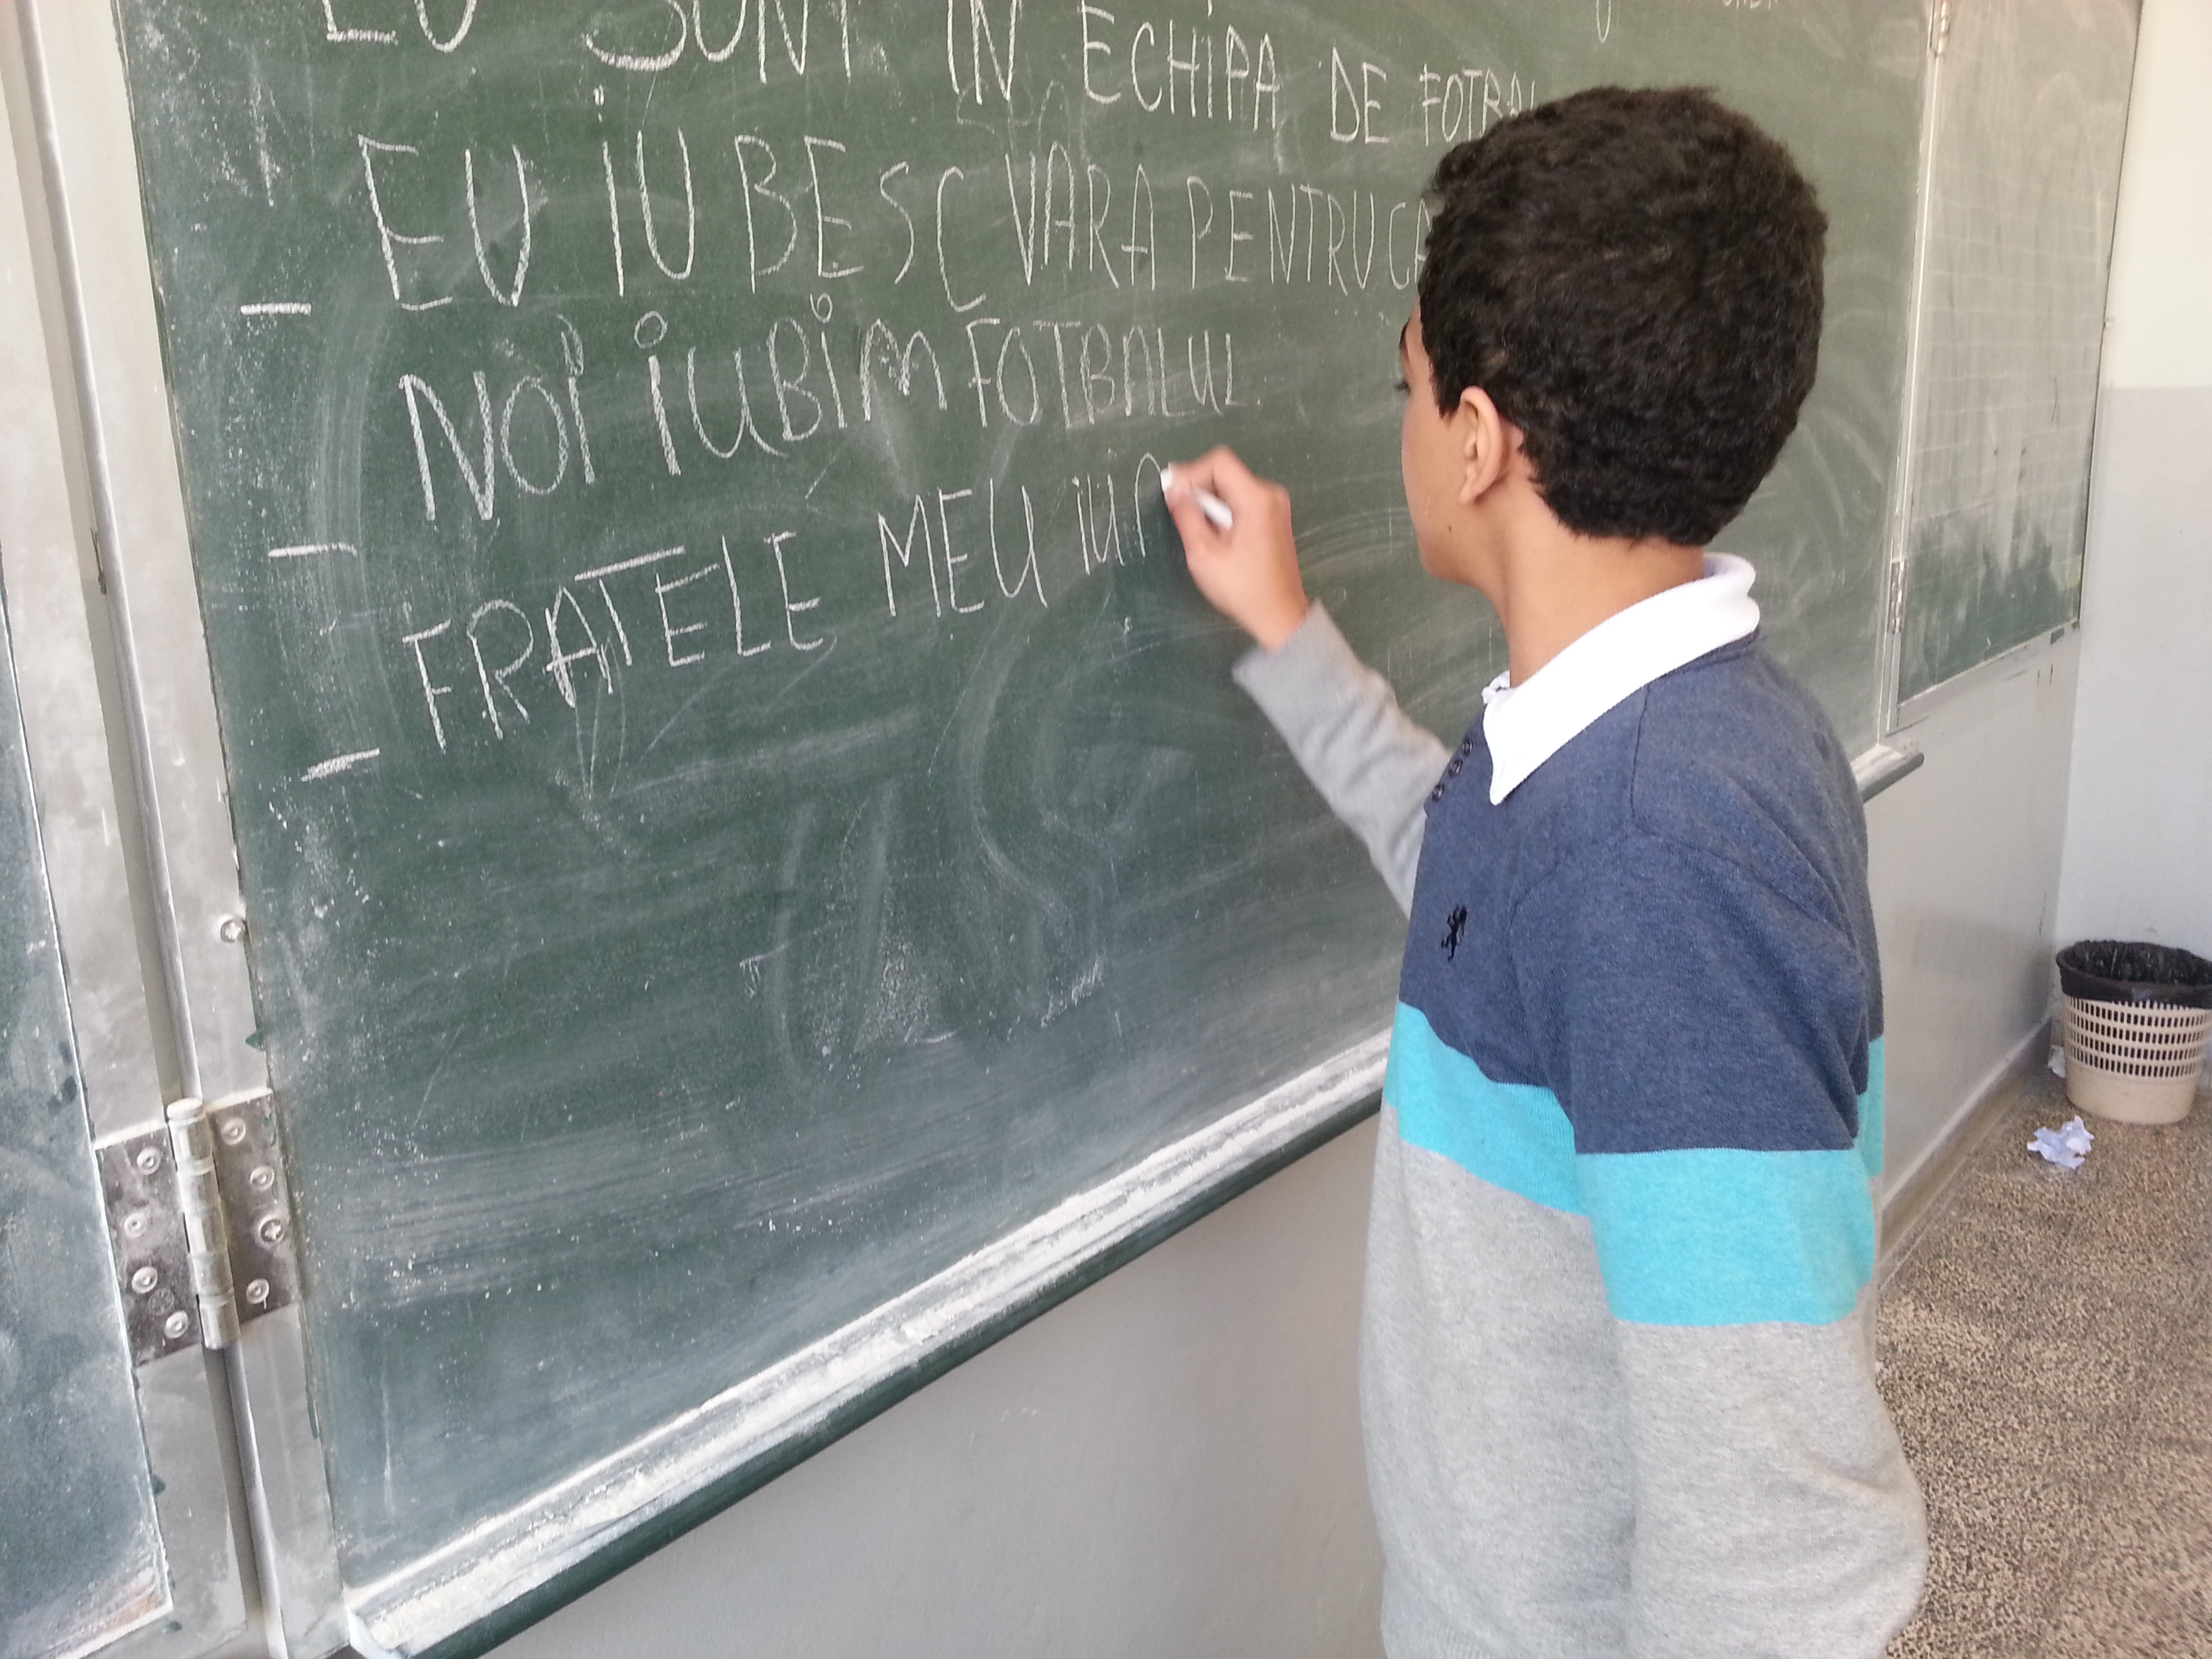 EU SUNT IN ECHIPA DE FOTBAL
EU IUBESC VARA PENTRU CA
- NOI IUBIM FOTBALUL.
- FRATELE MEU IU
-